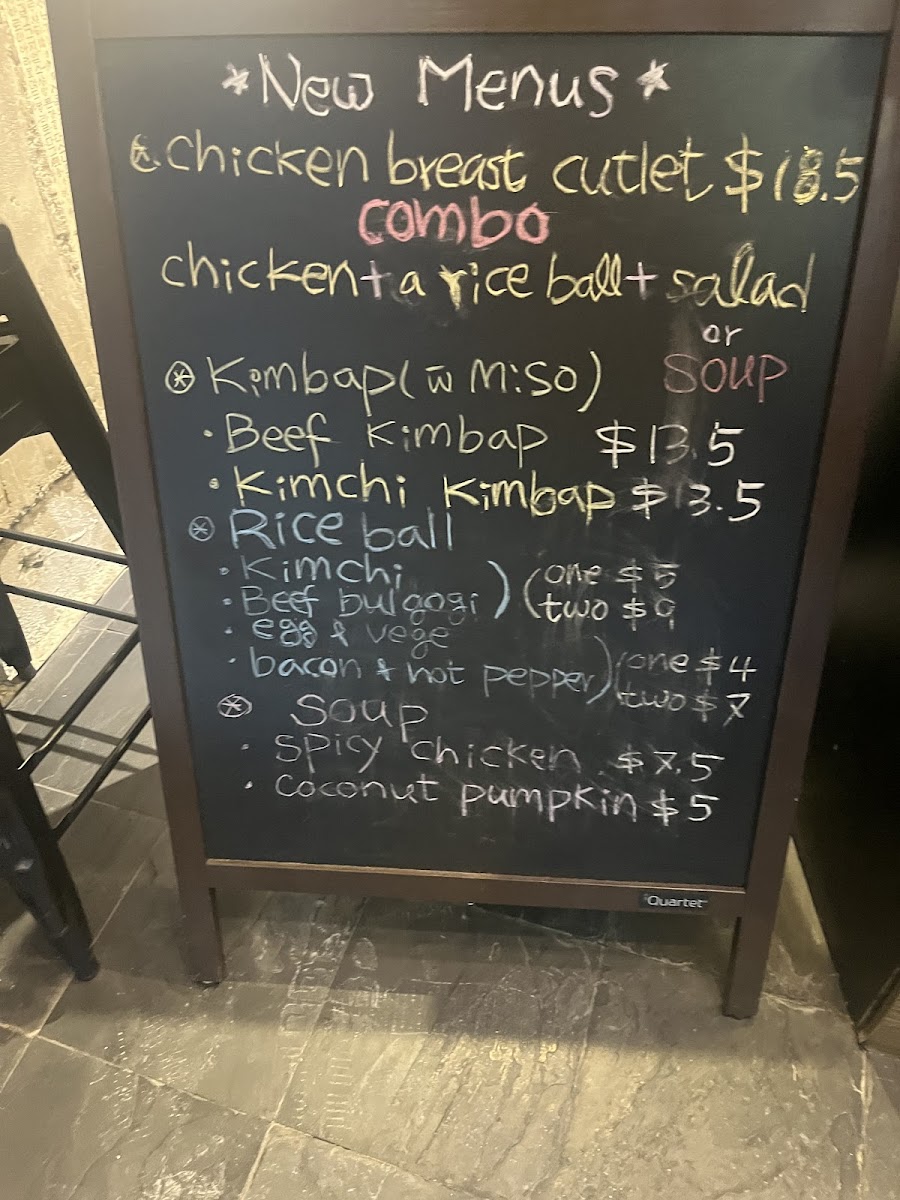 *New Menus*
chicken breast cutlet $18.5
combo
chicken + a rice ball + salad
or
soup
Kimbap (w̄ Miso)
· Beef Kimbap $13.5
· Kimchi Kimbap $13.5
Rice ball
· Kimchi
· Beef bulgogi ) (one $5
two $9
· egg & vege
· bacon & hot pepper) (one $4
two $7
Soup
· Spicy chicken $7.5
· coconut pumpkin $5
Quartet